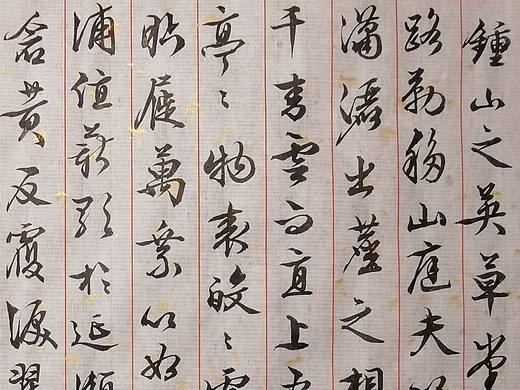 鍾山之英草堂
路勒移山庭夫以
瀟灑出塵之想
干青雲而直上吾
亭々物表皎々霞
眄屣萬乘以如
浦值薪歌於延瀨
倉黃反覆淚翟